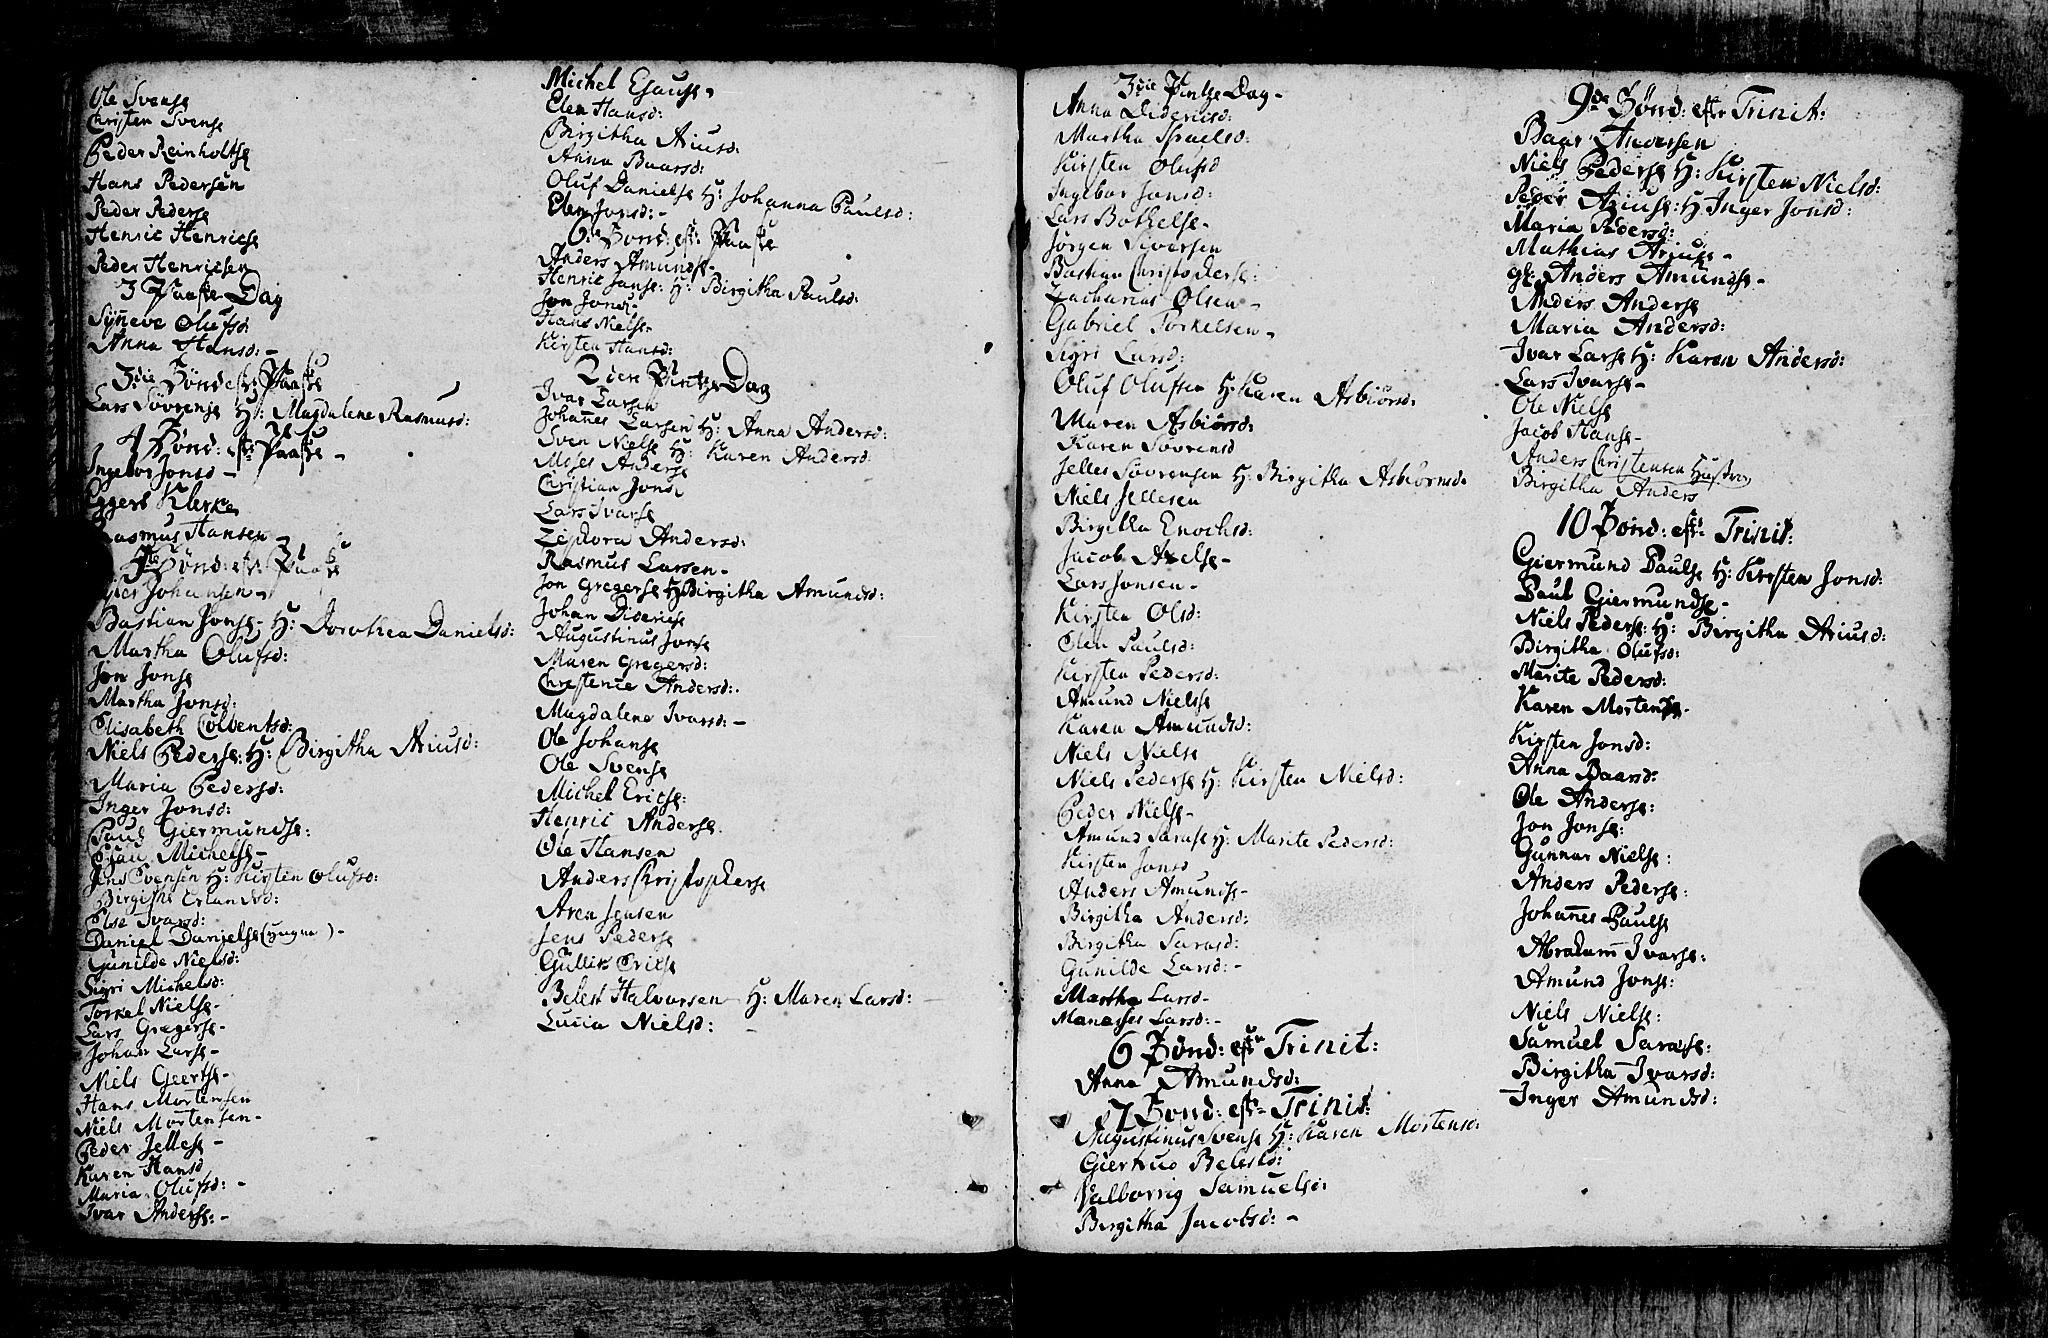 Ole Svense
Christen Svense
Peder Reinholtse
Hans Pedersen
Peder Pederse
Henric Henricse
Peder Henricsen
3 Paaske Dag
Synneve Olufsd:
Anna Hansd: -
3die Sönd: eft: Paaske
Lars Sövrense H: Magdalene Rasmusd:
4 Sönd: eft: Paaske -
Ingebor Jonsd -
Eggert Klerke
Rasmus Hansen -
5te Sönd: eft: Paaske
Johansen -
Bastian Jonse - H: Dorothea Danielsd:
Martha Olufsd:
Jon Jonse
Martha Jonsd:
Elisabeth Colbentsd:
Niels Pederse: H: Birgitha Ariusd:
Maria Pedersd:
Inger Jonsd:
Paul Giermundse:
Esau Michelse -
Jens Svensen H: Kirsten Olufsd:
Birgithe Erlandsd:
Else Ivarsd:
Daniel Danielse (yngre) -
Gunilde Nielsd:
Sigri Michelsd:
Torkel Nielse -
Lars Gregerse -
Johan Larse -
Niels Geertse -
Hans Mortensen
Niels Mortensen -
Peder Jellese -
Karen Hansd
Maria Olufsd: -
Ivar Anderse: -
Michel Esause -
Elen Hansd:
Birgitha Ariusd:
Anna Baarsd:
Oluf Danielse H: Johanna Paulsd:
Elen Jonsd: -
6te Sönd: eft: Paaske
Anders Amundse -
Henric Janse: H: Birgitha Paulsd:
Jon Jonse -
Hans Nielse -
Kirsten Hansd:
2den Pintze Dag
Ivar Larsen
Johannes Larsen H: Anna Andersd:
Sven Nielse H: Karen Andersd:
Moses Anderse
Christian Jonse
Lars Ivarse
Zephora Andersd:
Rasmus Larsen -
Jon Gregerse H: Birgitha Amundsd:
Johan Didericse
Augustinus Jonse
Maren Gregersd:
Christence Andersd:
Magdalene Ivarsd: -
Ole Johanse
Ole Svense
Michel Ericse:
Henric Anderse
Ole Hansen
Anders Christopherse
Aren Jensen
Jens Pederse
Gullik Ericse
Belest Halvorsen H: Maren Larsd:
Lucia Nielsd:
3die Pintze Dag -
Anna Didericsd:
Martha Israelsd:
Kirsten Olufsd
Ingebor Jonsd:
Lars Botkelse -
Jörgen Siversen
Bastian Christopherse:
Zacharias Olsen -
Gabriel Torkelsen -
Sigri Larsd:
Oluf Olufsen H: Karen Asbiörsd:
Maren Asbiörsd:
Karen Sövrensd
Jelles Sövrensen H: Birgitha Asbiörnsd:
Niels Jellesen
Birgitha Enochsd:
Jacob Axelse -
Lars Jonsen -
Kirsten Olsd:
Elen Paulsd:
Kirsten Pedersd:
Amund Nielse
Karen Amundsd:
Niels Nielse
Niels Pederse H: Kirsten Nielsd:
Peder Nielse -
Amund Sarase H: Marite Pedersd:
Kirsten Jonsd
Anders Amundse -
Birgitha Andersd:
Birgitha Sarasd:
Gunilde Larsd: -
Martha Larsd -
Manasses Larsd: -
6 Sönd: eftr Trinit:
Anna Amundsd:
7 Sönd: eftr Trinit:
Augustinus Svense H: Karen Mortensd:
Giertrud Belestd:
Valborrig Samuelsd:
Birgitha Jacobsd: -
9de Sönd: eftr Trinit:
Baar Andersen
Niels Pederse H: Kirsten Nielsd:
Peder Ariuse: H: Inger Jonsd:
Maria Pedersd:
Mathias Ariuse -
gl: Anders Amundse -
Anders Anderse
Maria Andersd:
Ivar Larse H: Karen Andersd:
Lars Ivarse -
Ole Nielse
Jacob Hanse -
Anders Christensen Hustroe
Birgitha Anders
10 Sönd: eftr Trinit:
Giermund Paulse H: Kirsten Jonsd:
Paul Giermundse -
Niels Pederse: H: Birgitha Ariusd:
Birgitha Olufsd:
Marite Pedersd:
Karen Mortensd -
Kirsten Jonsd:
Anna Baarsd:
Ole Anderse:
Jon Jonse:
Gunnar Nielse:
Anders Pederse:
Johannes Paulse
Abraham Ivarse:
Amund Jonse:
Niels Nielse:
Samuel Sarase:
Birgitha Ivarsd:
Inger Amundsd: